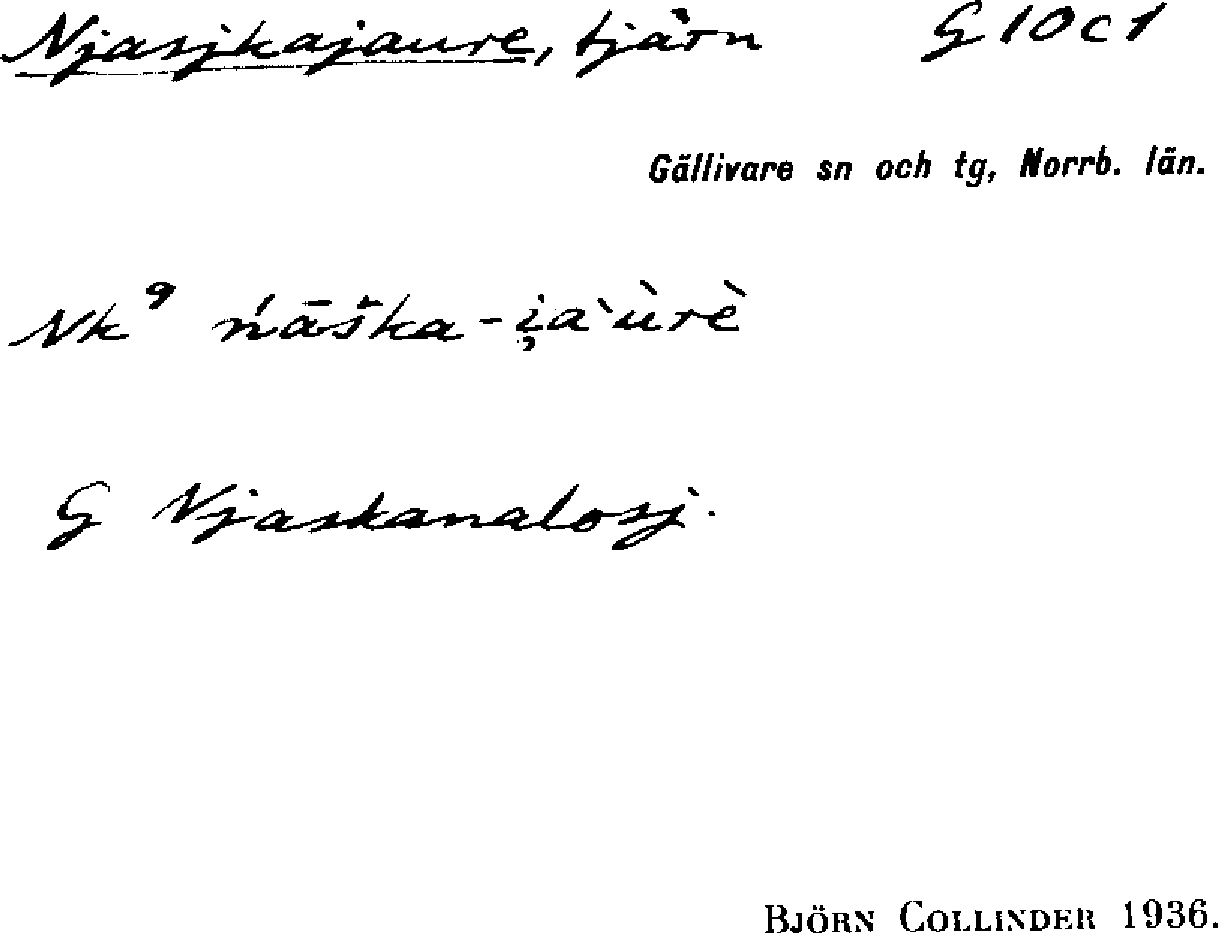 Njasjkajaure, tjärn G 10 c 1
Gällivare sn och tg, Norrb. län.
Nk⁹ ńāška-i̯a`ùrè
G Njaskanalosj.
BJÖRN COLLINDER 1936.